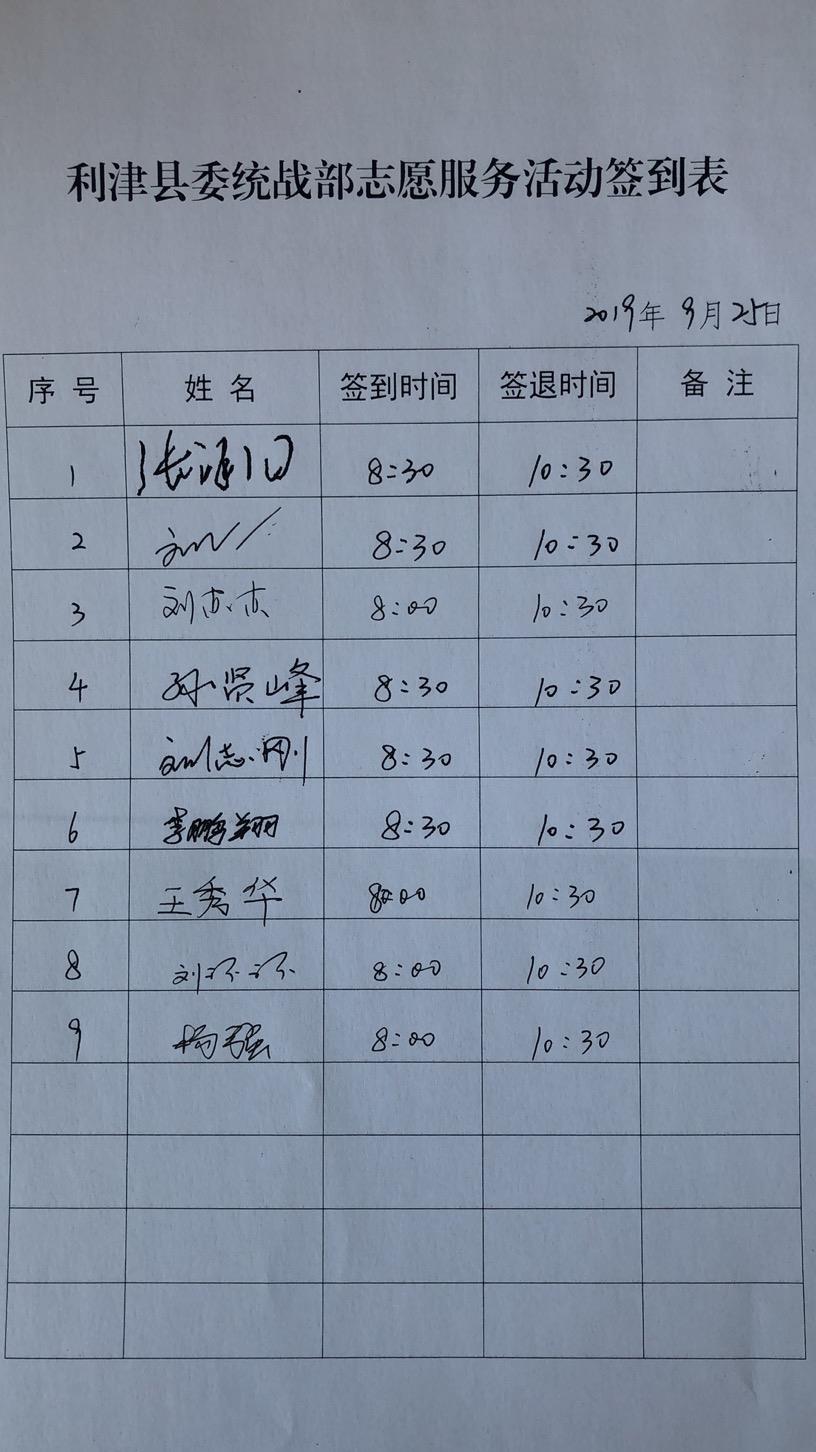 利津县委统战部志愿服务活动签到表
2019年 9月25日
序号 姓名 签到时间 签退时间 备注
1 8:30 10:30
2 刘 8:30 10:30
3 刘杰杰 8:00 10:30
4 孙贤峰 8:30 10:30
5 刘志刚 8:30 10:30
6 李鹏翔 8:30 10:30
7 王秀华 8:00 10:30
8 刘环环 8:00 10:30
9 杨强 8:00 10:30